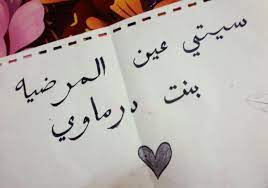 سيتي عين المرضيه
بنت درماوي